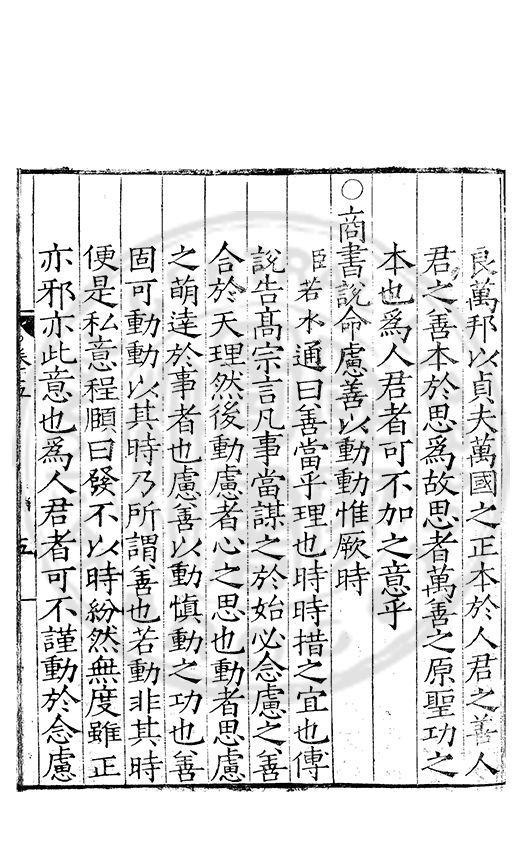 良萬邦以貞夫萬國之正本於人君之善人
君之善本於思為故思者萬善之原聖功之
本也為人君者可不加之意乎
○商書說命慮善以動動惟厥時
臣若水通曰善當乎理也時時措之宜也傅
說告髙宗言凡事當謀之於始必念慮之善
合於天理然後動慮者心之思也動者思慮
之萌達於事者也慮善以動慎動之功也善
固可動動以其時乃所謂善也若動非其時
便是私意程頤曰發不以時紛然無度雖正
亦邪亦此意也為人君者可不謹動於念慮
卷五
五